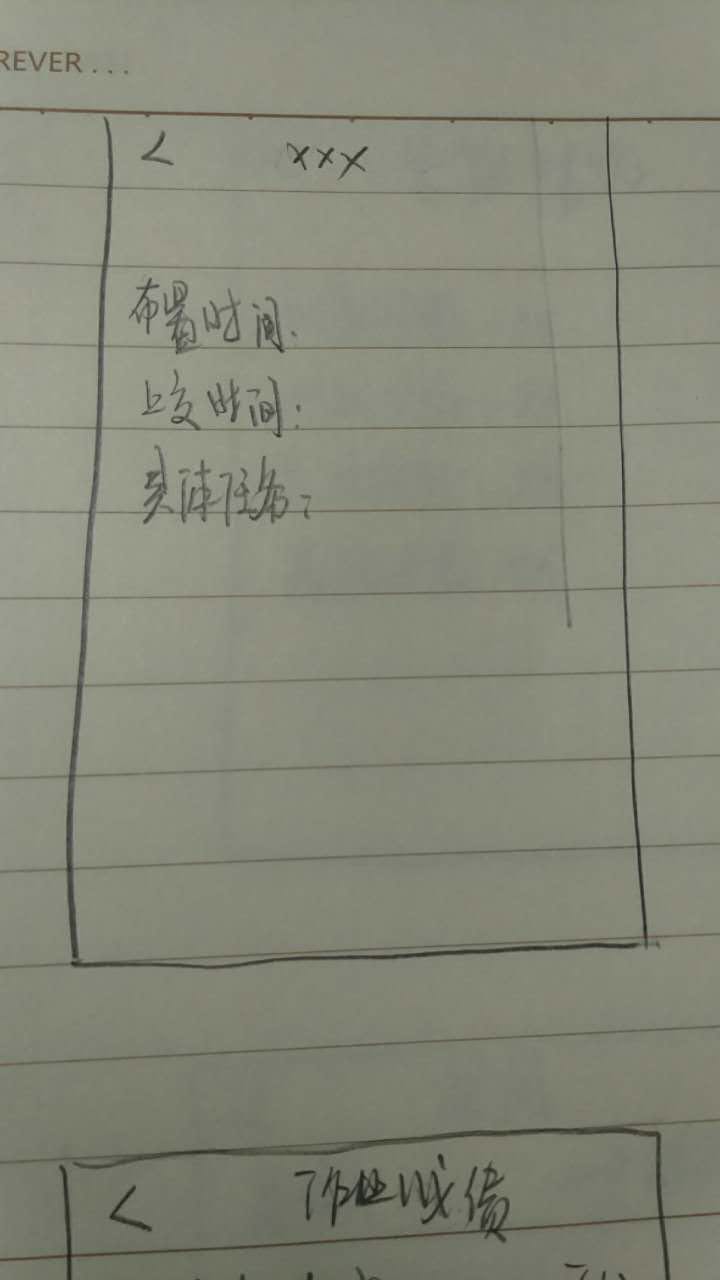 REVER...
< xxx
布置时间:
上交时间:
具体任务:
< 作业成绩